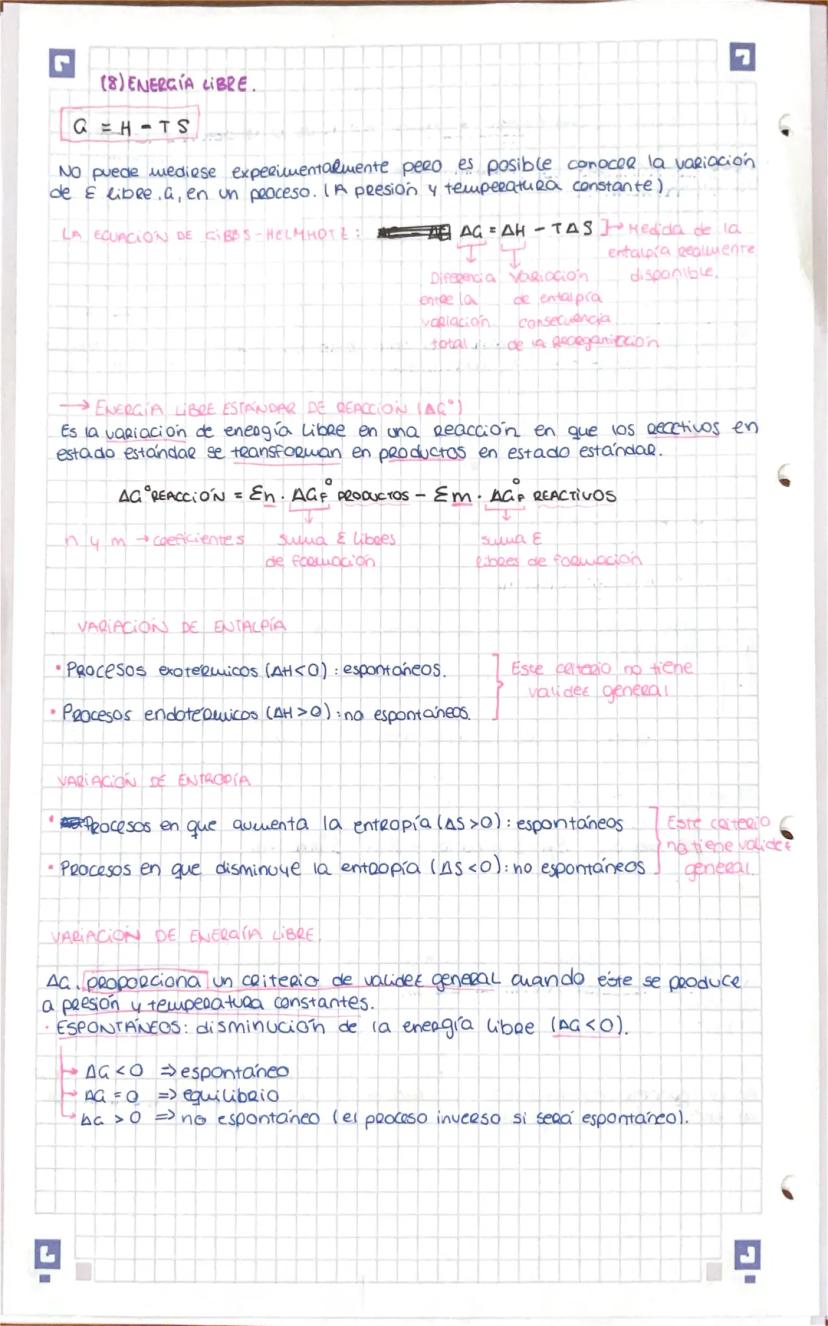 (8) ENERGÍA LIBRE.
G = H - TS
No puede medirse experimentalmente pero es posible conocer la variación
de E libre, G, en un proceso. (A presión y temperatura constante)
LA ECUACIÓN DE GIBBS-HELMHOTZ: ΔG = ΔH - TΔS ]→ Medida de la
entalpía realmente
disponible.
Diferencia
entre la
variación
total
Variación
de entalpía
consecuencia
de la reorganización
→ ENERGÍA LIBRE ESTÁNDAR DE REACCIÓN (ΔG°)
Es la variación de energía libre en una reacción en que los reactivos en
estado estándar se transforman en productos en estado estándar.
ΔG° REACCIÓN = Σn · ΔGf° PRODUCTOS - Σm · ΔGf° REACTIVOS
n y m → coeficientes
suma E libres
de formación
suma E
libres de formación
VARIACIÓN DE ENTALPÍA
· Procesos exotérmicos (ΔH<0): espontáneos.
· Procesos endotérmicos (ΔH>0): no espontáneos.
Este criterio no tiene
validez general
VARIACIÓN DE ENTROPÍA
· Procesos en que aumenta la entropía (ΔS>0): espontáneos
· Procesos en que disminuye la entropía (ΔS<0): no espontáneos
Este criterio
no tiene validez
general
VARIACIÓN DE ENERGÍA LIBRE.
ΔG, proporciona un criterio de validez general cuando éste se produce
a presión y temperatura constantes.
· ESPONTÁNEOS: disminución de la energía libre (ΔG<0).
→ ΔG<0 ⇒ espontáneo
→ ΔG=0 ⇒ equilibrio
→ ΔG>0 ⇒ no espontáneo (el proceso inverso si será espontáneo).